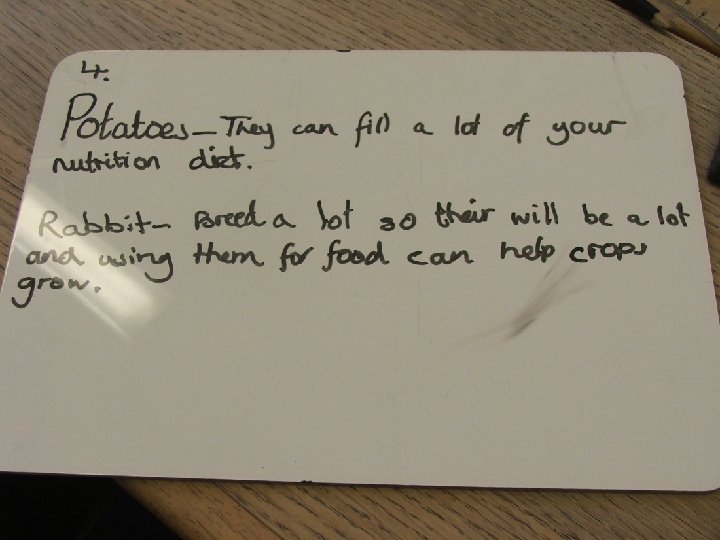 4.
Potatoes - They can fill a lot of your
nutrition diet.
Rabbit - Breed a lot so their will be a lot
and using them for food can help crops
grow.